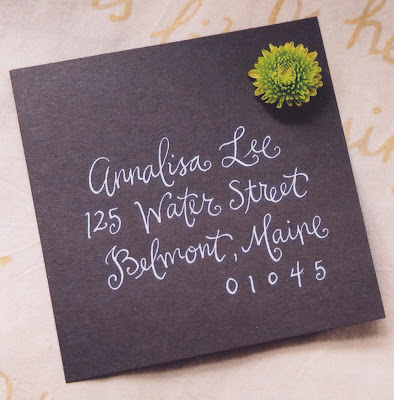 Annalisa Lee
125 Water Street
Belmont, Maine
01045